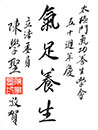 太極門氣功養生學會
五十週年慶
氣足養生
立法委員
陳學聖
敬賀